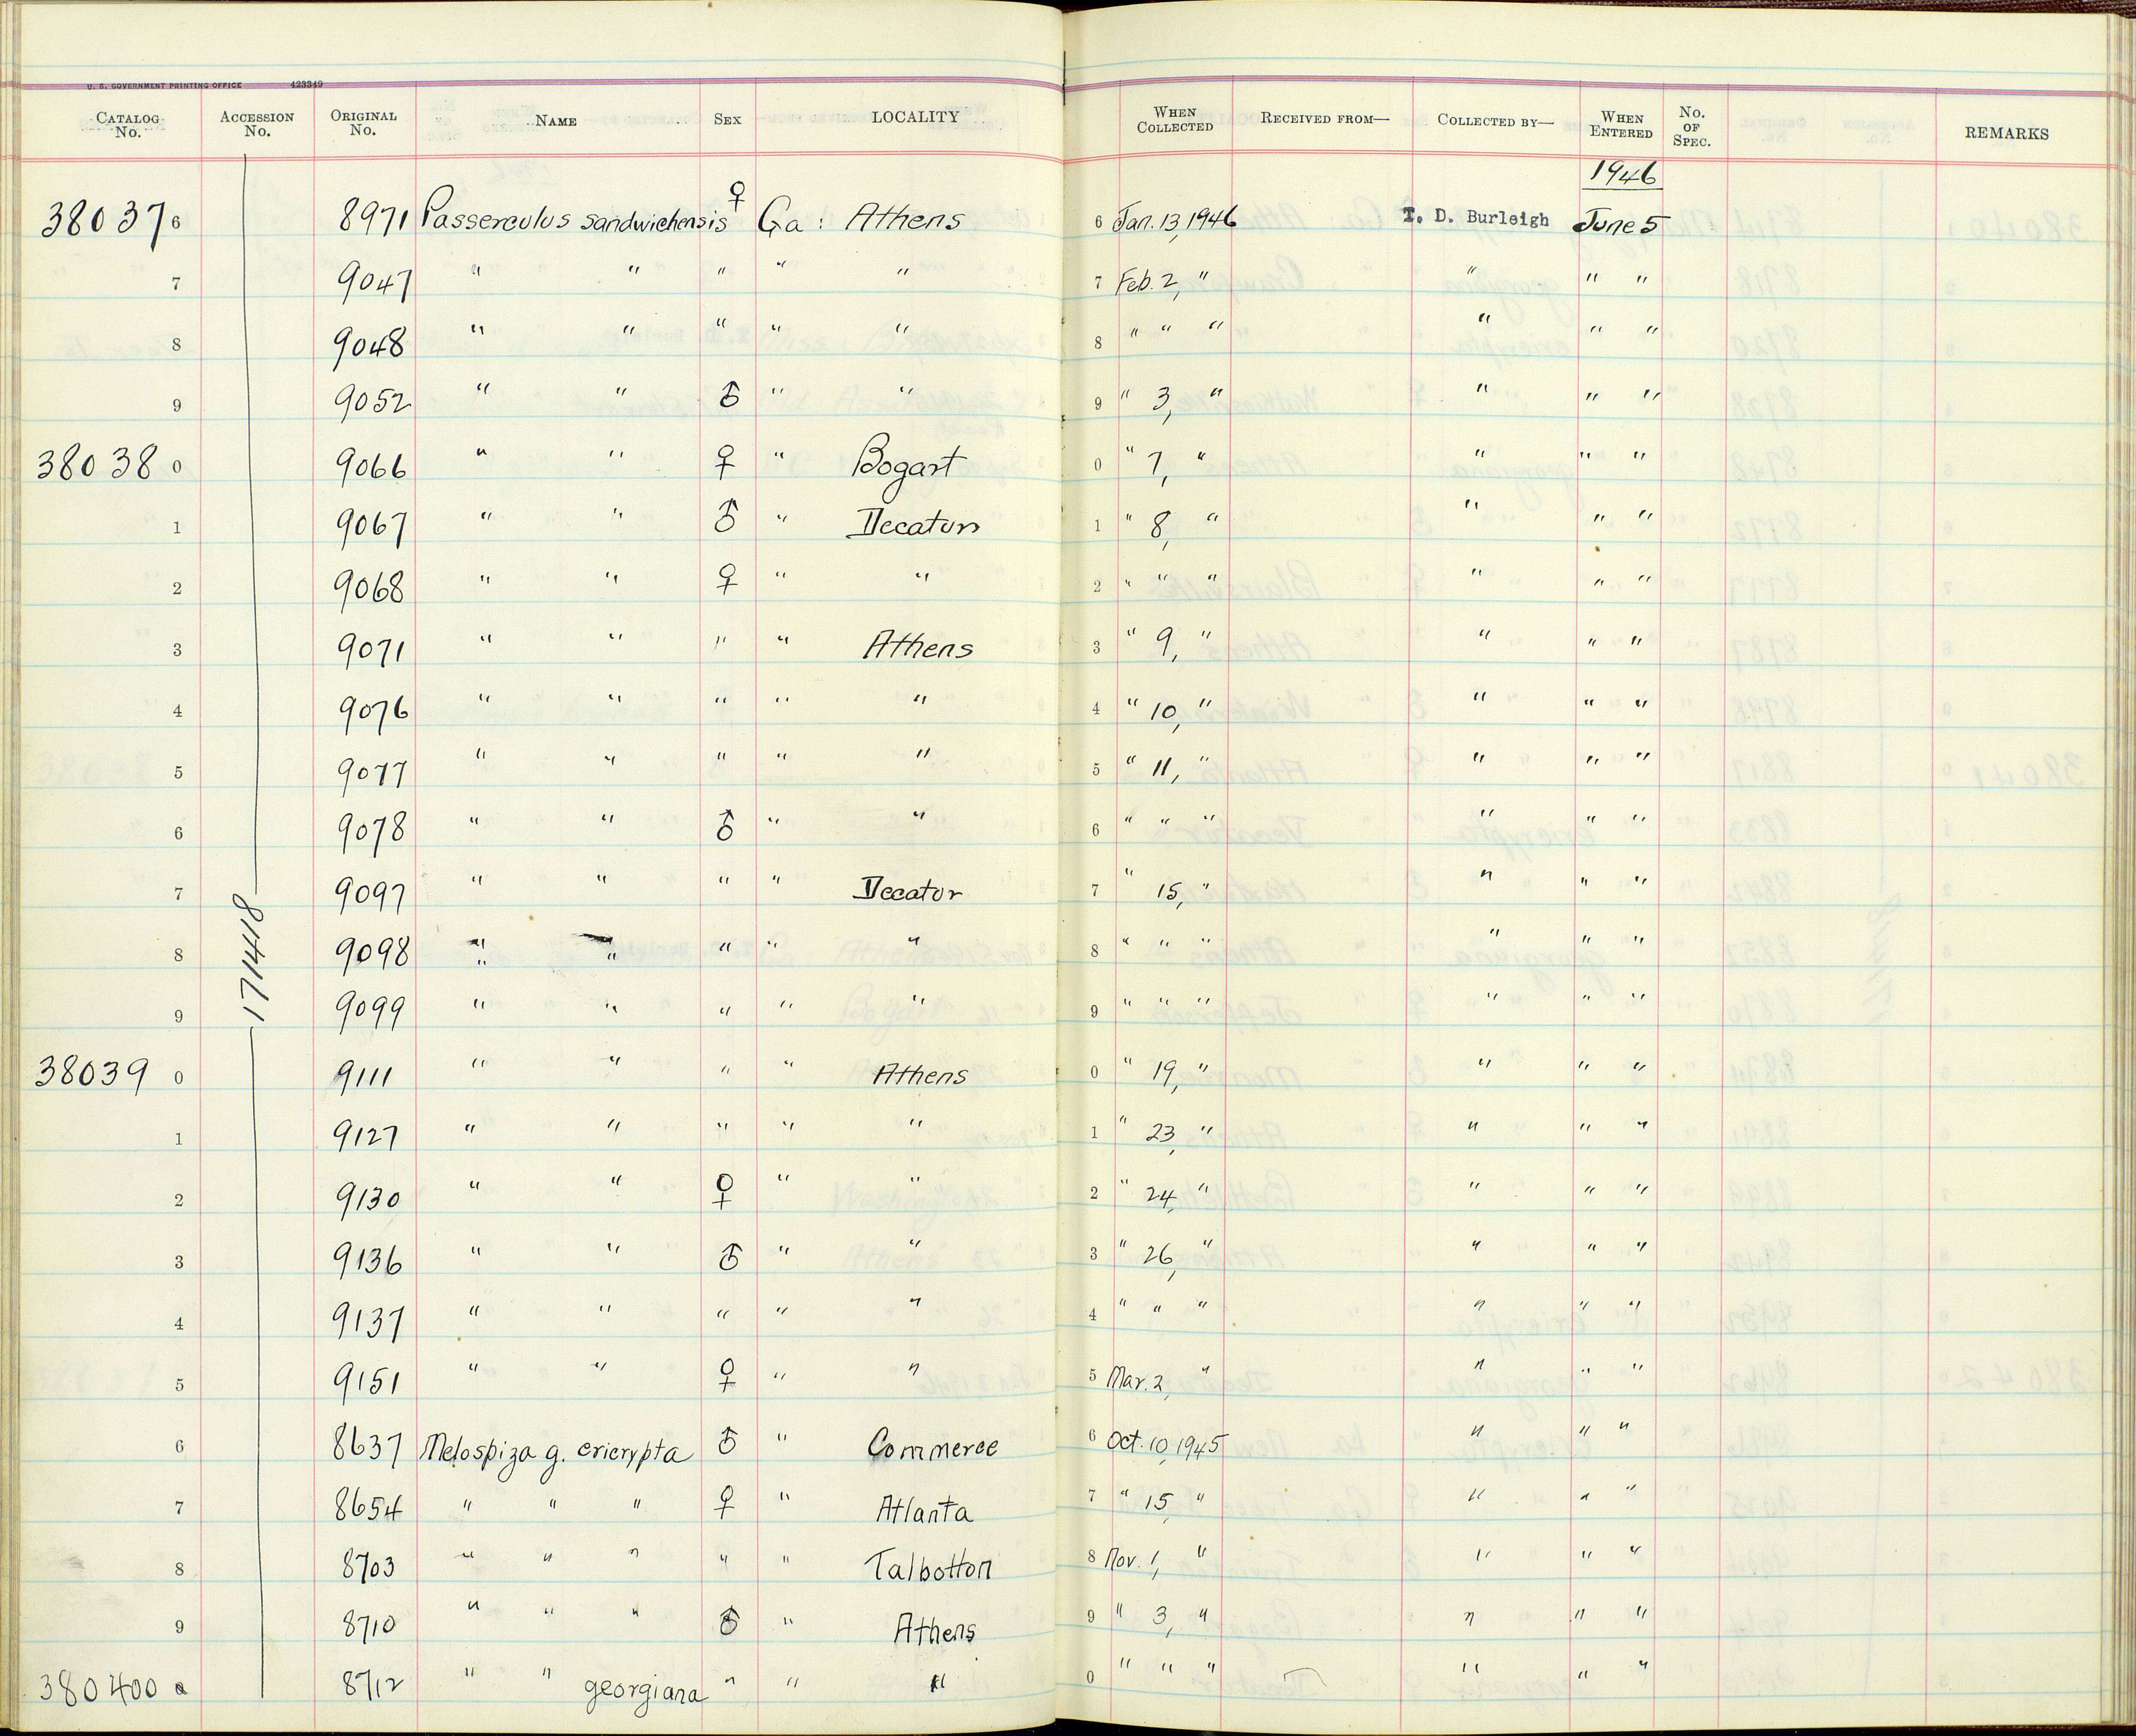 U. S. GOVERNMENT PRINTING OFFICE 423349
CATALOG No. ACCESSION No. ORIGINAL No. NAME SEX LOCALITY WHEN COLLECTED RECEIVED FROM— COLLECTED BY— WHEN ENTERED No. OF SPEC. REMARKS
1946
38037 6 8971 Passerculus sandwichensis ♀ Ga: Athens 6 Jan. 13, 1946 T. D. Burleigh June 5
7 9047 " " " " " 7 Feb. 2, " " " "
8 9048 " " " " " 8 " " " " " "
9 9052 " " ♂ " " 9 " 3, " " " "
38038 0 9066 " " ♀ " Bogart 0 " 7, " " " "
1 9067 " " ♂ " Decatur 1 " 8, " " " "
2 9068 " " ♀ " " 2 " " " " " "
3 9071 " " " " Athens 3 " 9, " " " "
4 9076 " " " " " 4 " 10, " " " "
5 9077 " " " " " 5 " 11, " " " "
6 9078 " " ♂ " " 6 " " " " " "
7 9097 " " " " Decator 7 " 15, " " " "
171418
8 9098 " " " " " 8 " " " " " "
9 9099 " " " " " 9 " " " " " "
38039 0 9111 " " " " Athens 0 " 19, " " " "
1 9127 " " " " " 1 " 23, " " " "
2 9130 " " ♀ " " 2 " 24, " " " "
3 9136 " " ♂ " " 3 " 26, " " " "
4 9137 " " " " " 4 " " " " " "
5 9151 " " ♀ " " 5 Mar. 2, " " " "
6 8637 Melospiza g. ericrypta ♂ " Commerce 6 Oct. 10, 1945 " " "
7 8654 " " " ♀ " Atlanta 7 " 15, " " " "
8 8703 " " " " " Talbotton 8 Nov. 1, " " " "
9 8710 " " " ♂ " Athens 9 " 3, " " " "
380400 8712 " " georgiana " " " 0 " " " " " "